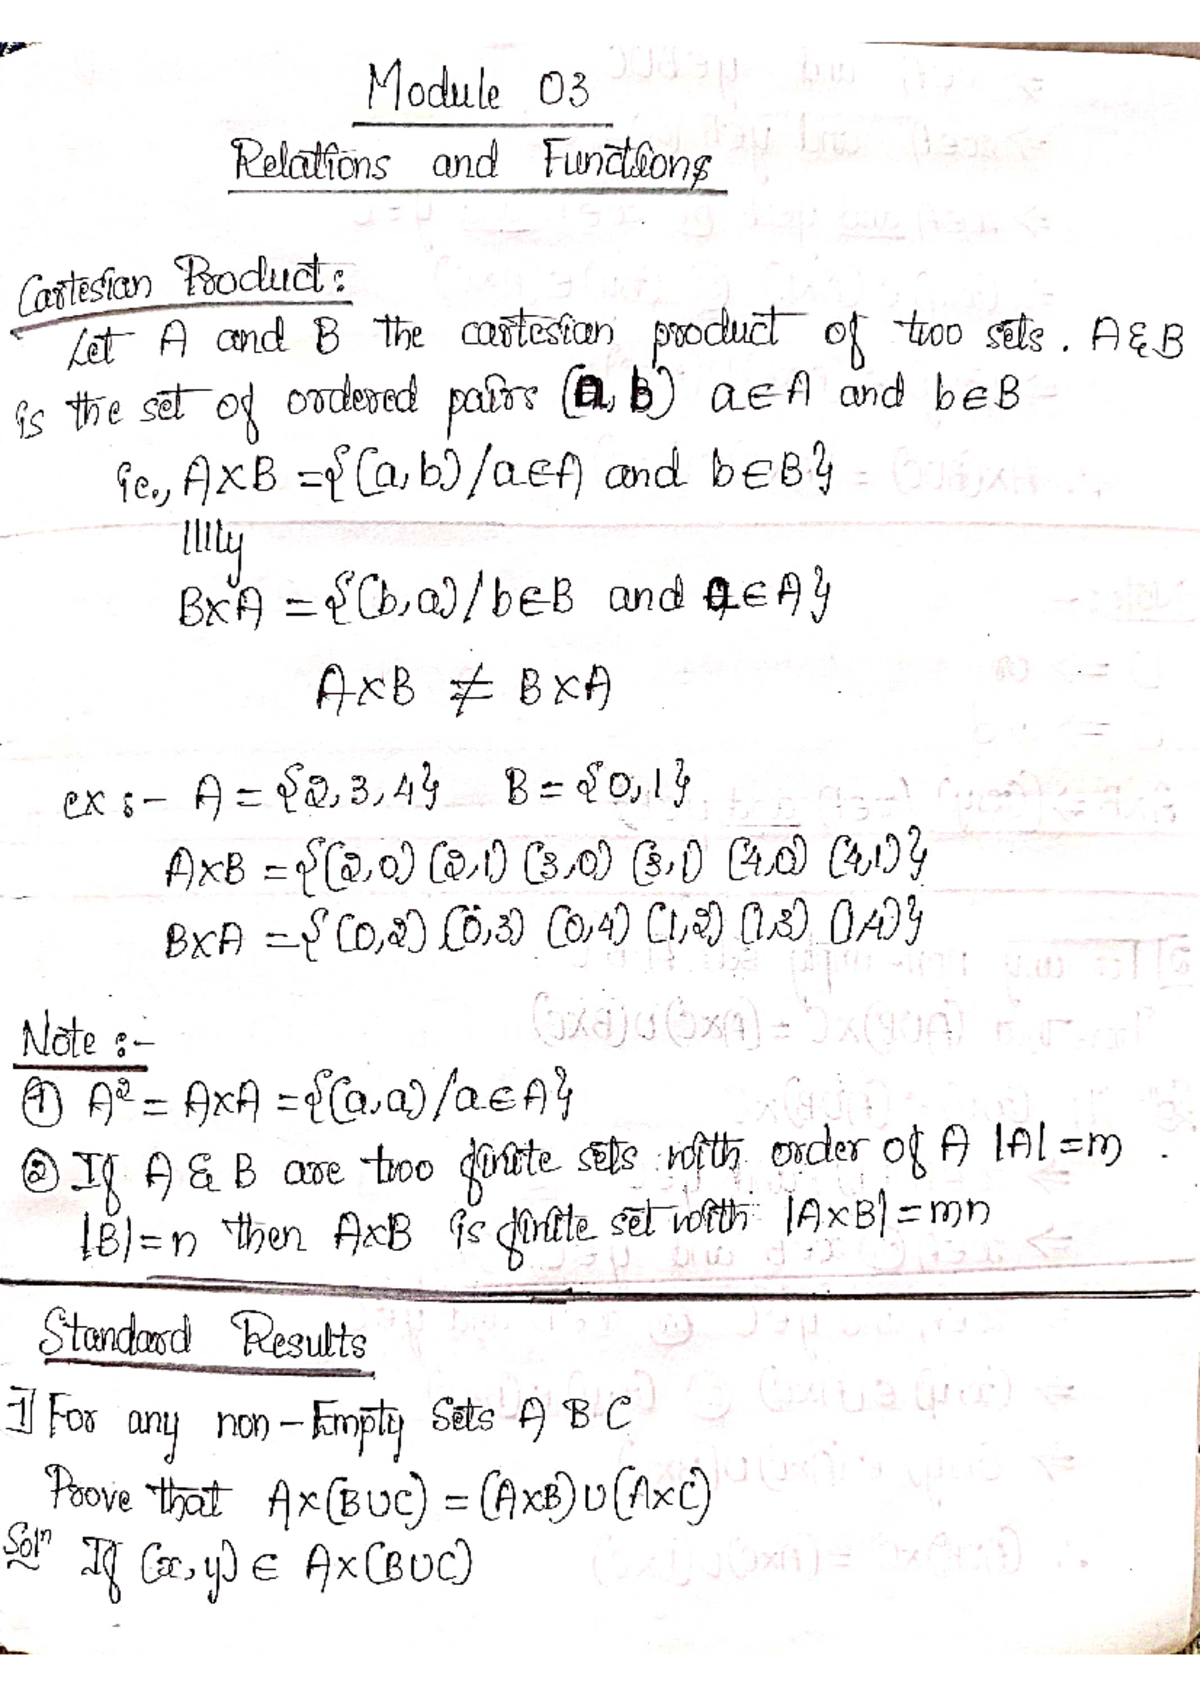 Module 03
Relations and Functions
Cartesian Product:
Let A and B the cartesian product of two sets. A & B
is the set of ordered pairs (a, b) a∈A and b∈B
ie., A×B = {(a, b) / a∈A and b∈B}
|||ly
B×A = {(b, a) / b∈B and a∈A}
A×B ≠ B×A
ex :- A = {2, 3, 4} B = {0, 1}
A×B = {(2,0) (2,1) (3,0) (3,1) (4,0) (4,1)}
B×A = {(0,2) (0,3) (0,4) (1,2) (1,3) (1,4)}
Note :-
① A² = A×A = {(a, a) / a∈A}
② If A & B are two finite sets with order of A |A| = m .
|B| = n then A×B is finite set with |A×B| = mn
Standard Results
1] For any non-Empty Sets A B C
Prove that A×(B∪C) = (A×B)∪(A×C)
Solⁿ If (x, y) ∈ A×(B∪C)